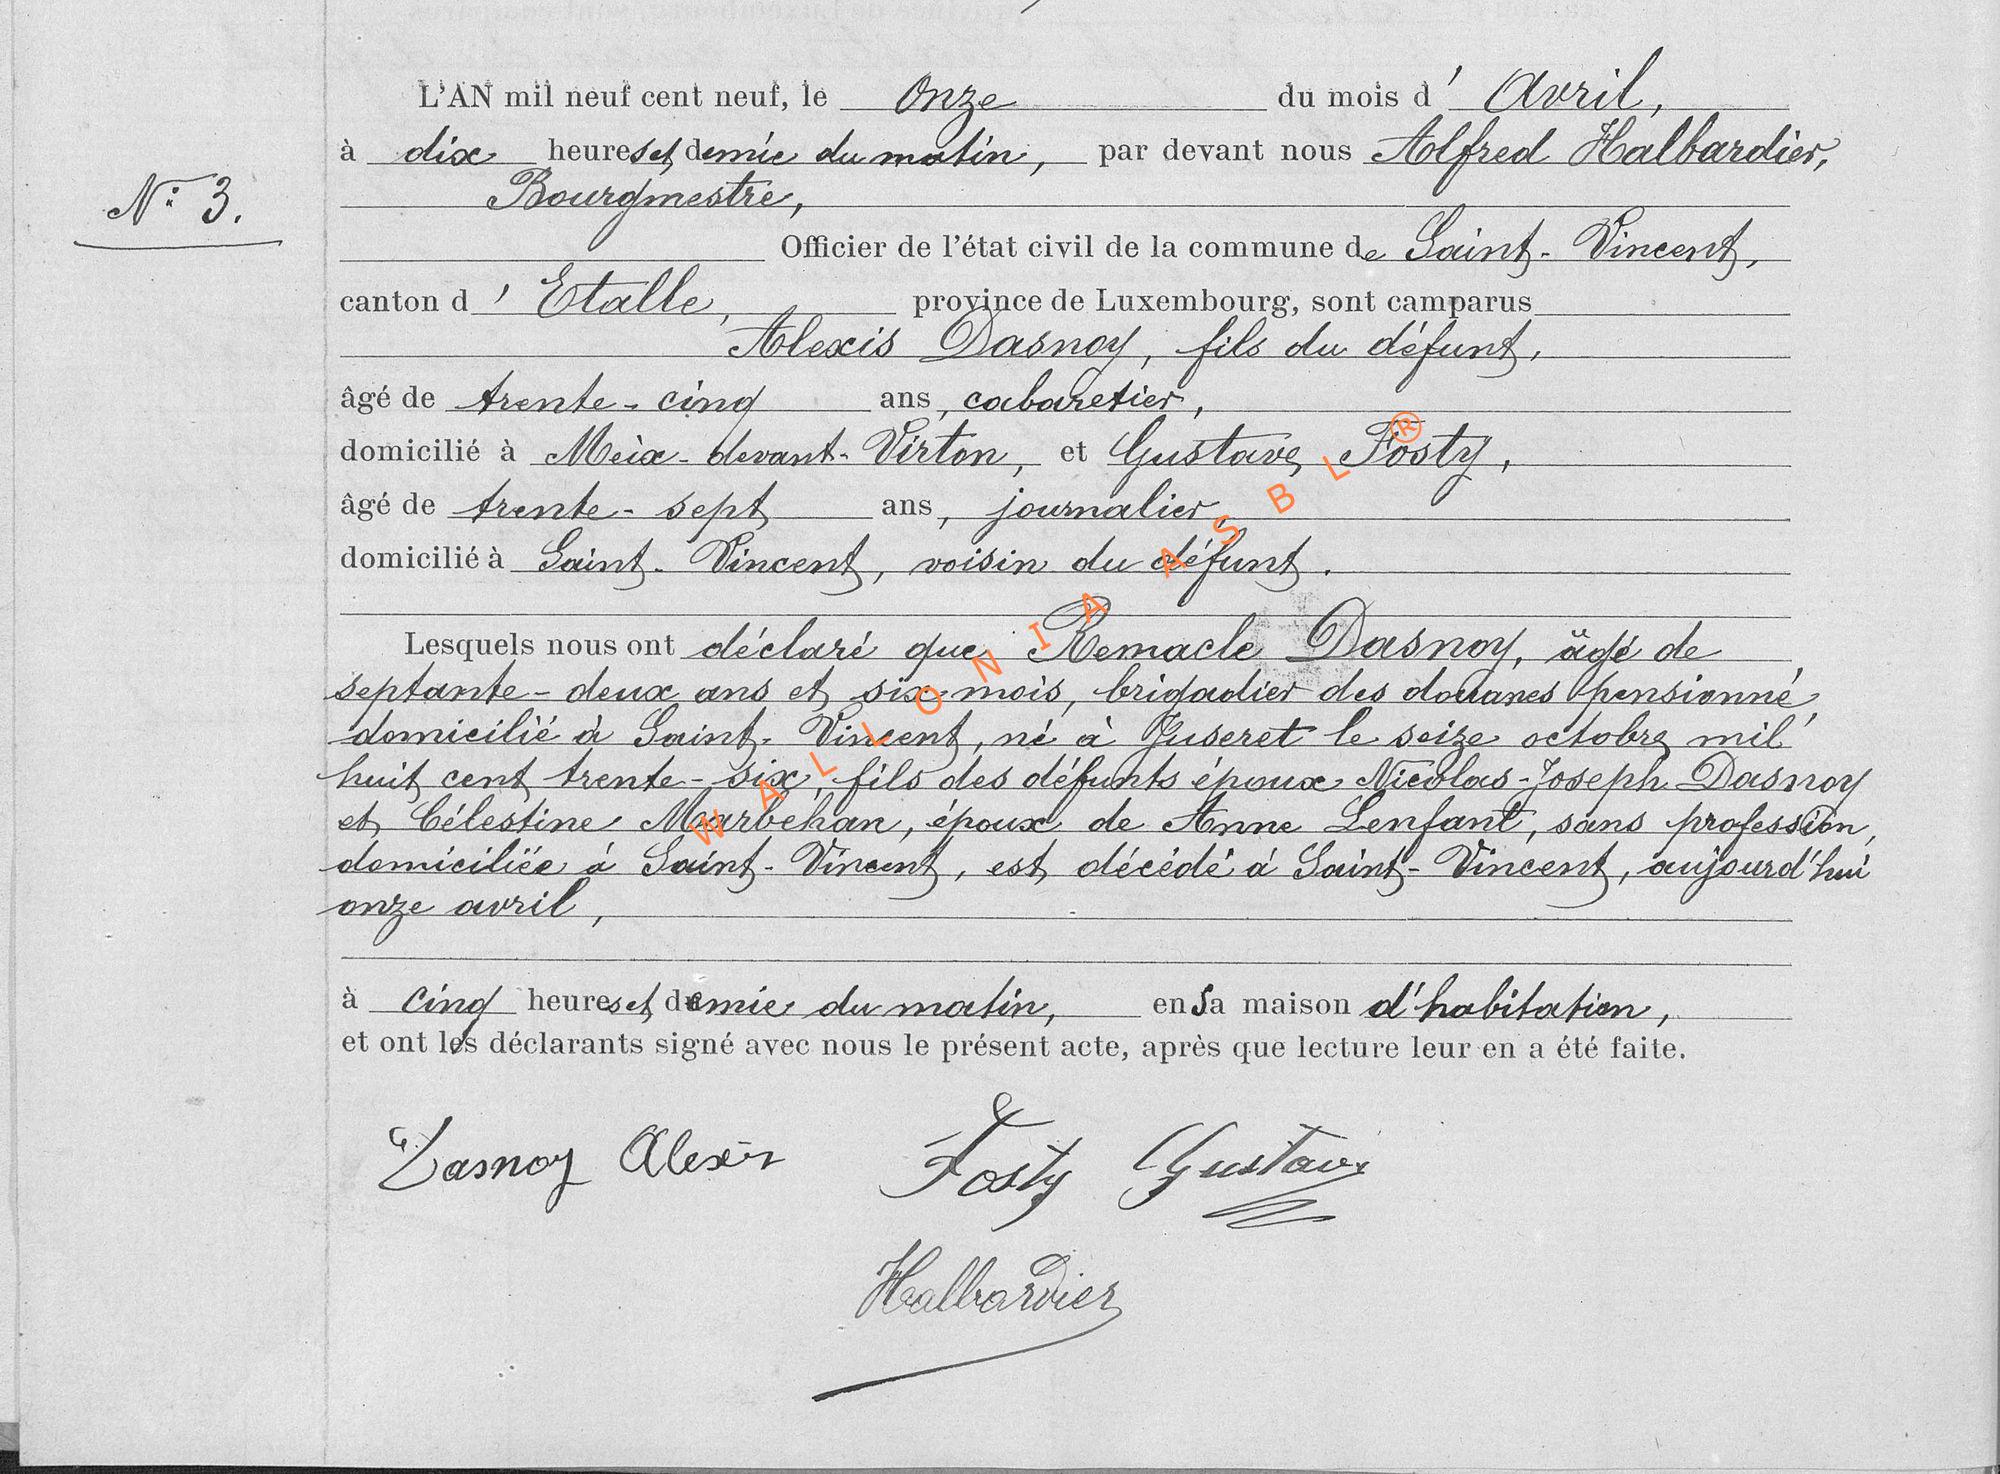 L'AN mil neuf cent neuf, le onze du mois d' Avril,
à dix heures et demie du matin, par devant nous Alfred Halbardier,
N° 3.
Bourgmestre,
Officier de l'état civil de la commune de Saint-Vincent,
canton d' Etalle, province de Luxembourg, sont camparus
Alexis Dasnoy, fils du défunt,
âgé de trente-cinq ans, cabaretier,
domicilié à Meix-devant-Virton, et Gustave Fosty,
âgé de trente-sept ans, journalier,
domicilié à Saint-Vincent, voisin du défunt.
Lesquels nous ont déclaré que Remacle Dasnoy, âgé de
septante-deux ans et six mois, brigadier des douanes pensionné,
domicilié à Saint-Vincent, né à Juseret le seize octobre mil
huit cent trente-six, fils des défunts époux Nicolas-Joseph Dasnoy
et Célestine Marbehan, époux de Anne Lenfant, sans profession,
domiciliée à Saint-Vincent, est décédé à Saint-Vincent, aujourd'hui
onze avril,
à cinq heures et demie du matin, en sa maison d'habitation,
et ont les déclarants signé avec nous le présent acte, après que lecture leur en a été faite.
Dasnoy Alexis Fosty Gustave
Halbardier
WALLONIA ASBL ®